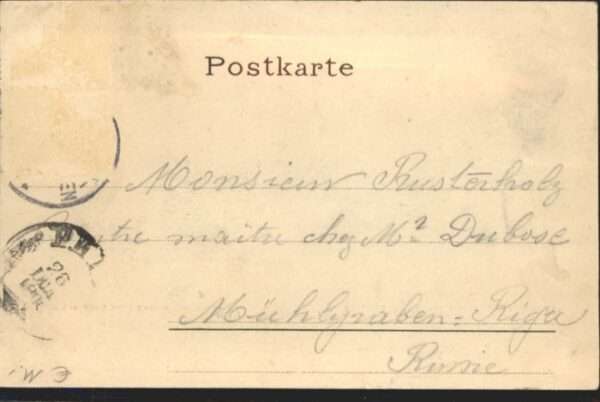 Postkarte
Monsieur Rusterholz
Contre maitre chez Mr Dubosc
26
Mühlgraben-Riga
Russie